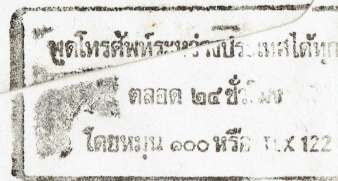 พูดโทรศัพท์ระหว่างประเทศได้ทุก
ตลอด ๒๔ ชั่วโมง
โดยหมุน ๑๐๐ หรือ TLX 122